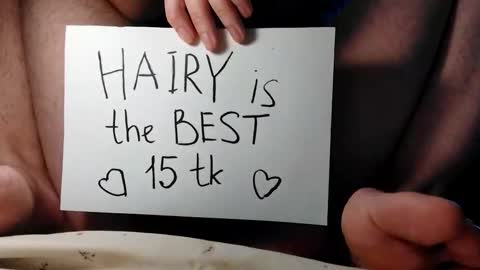 HAIRY is
the BEST
♡ 15 tk ♡